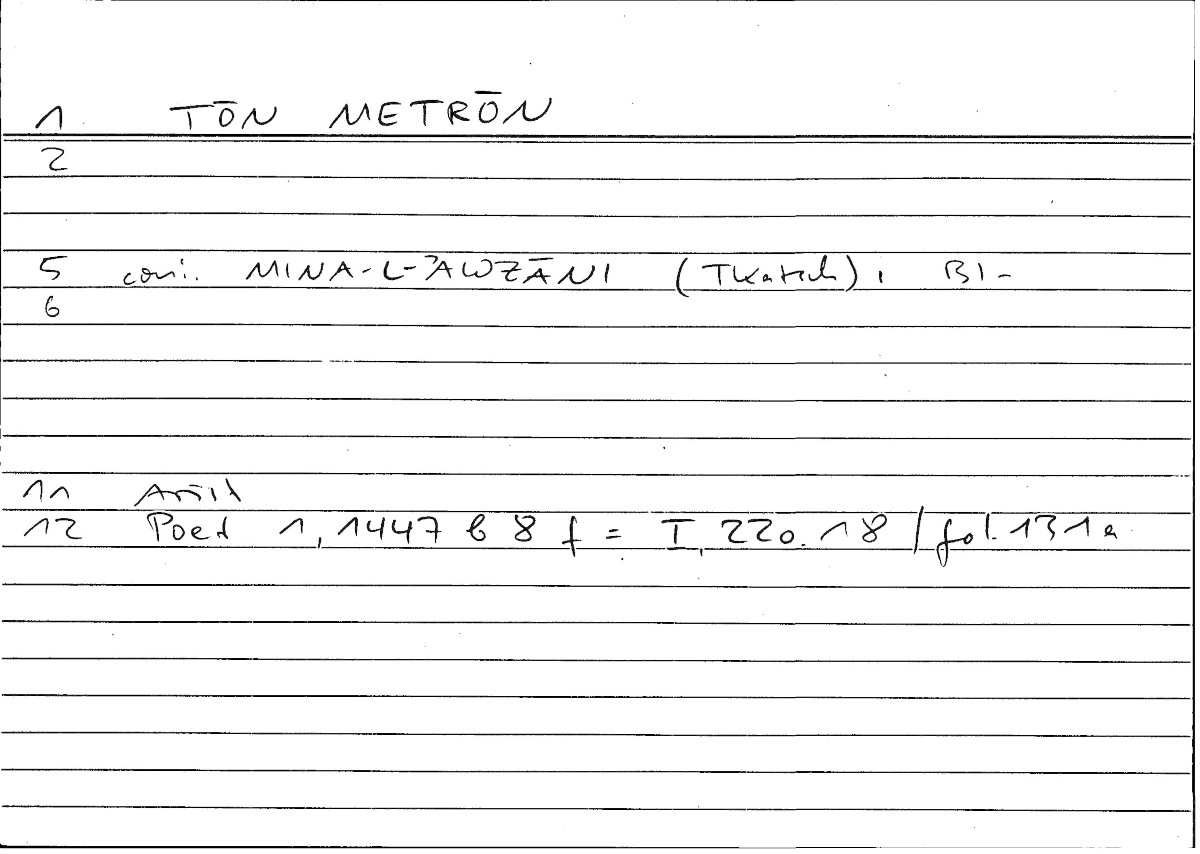 1 TŌN METRŌN
2
5 coni. MINA-L-ʾAWZĀNI (Tkatsch), BI-
6
11 Arist
12 Poet 1, 1447 b 8 f = I, 220.18 / fol. 131a